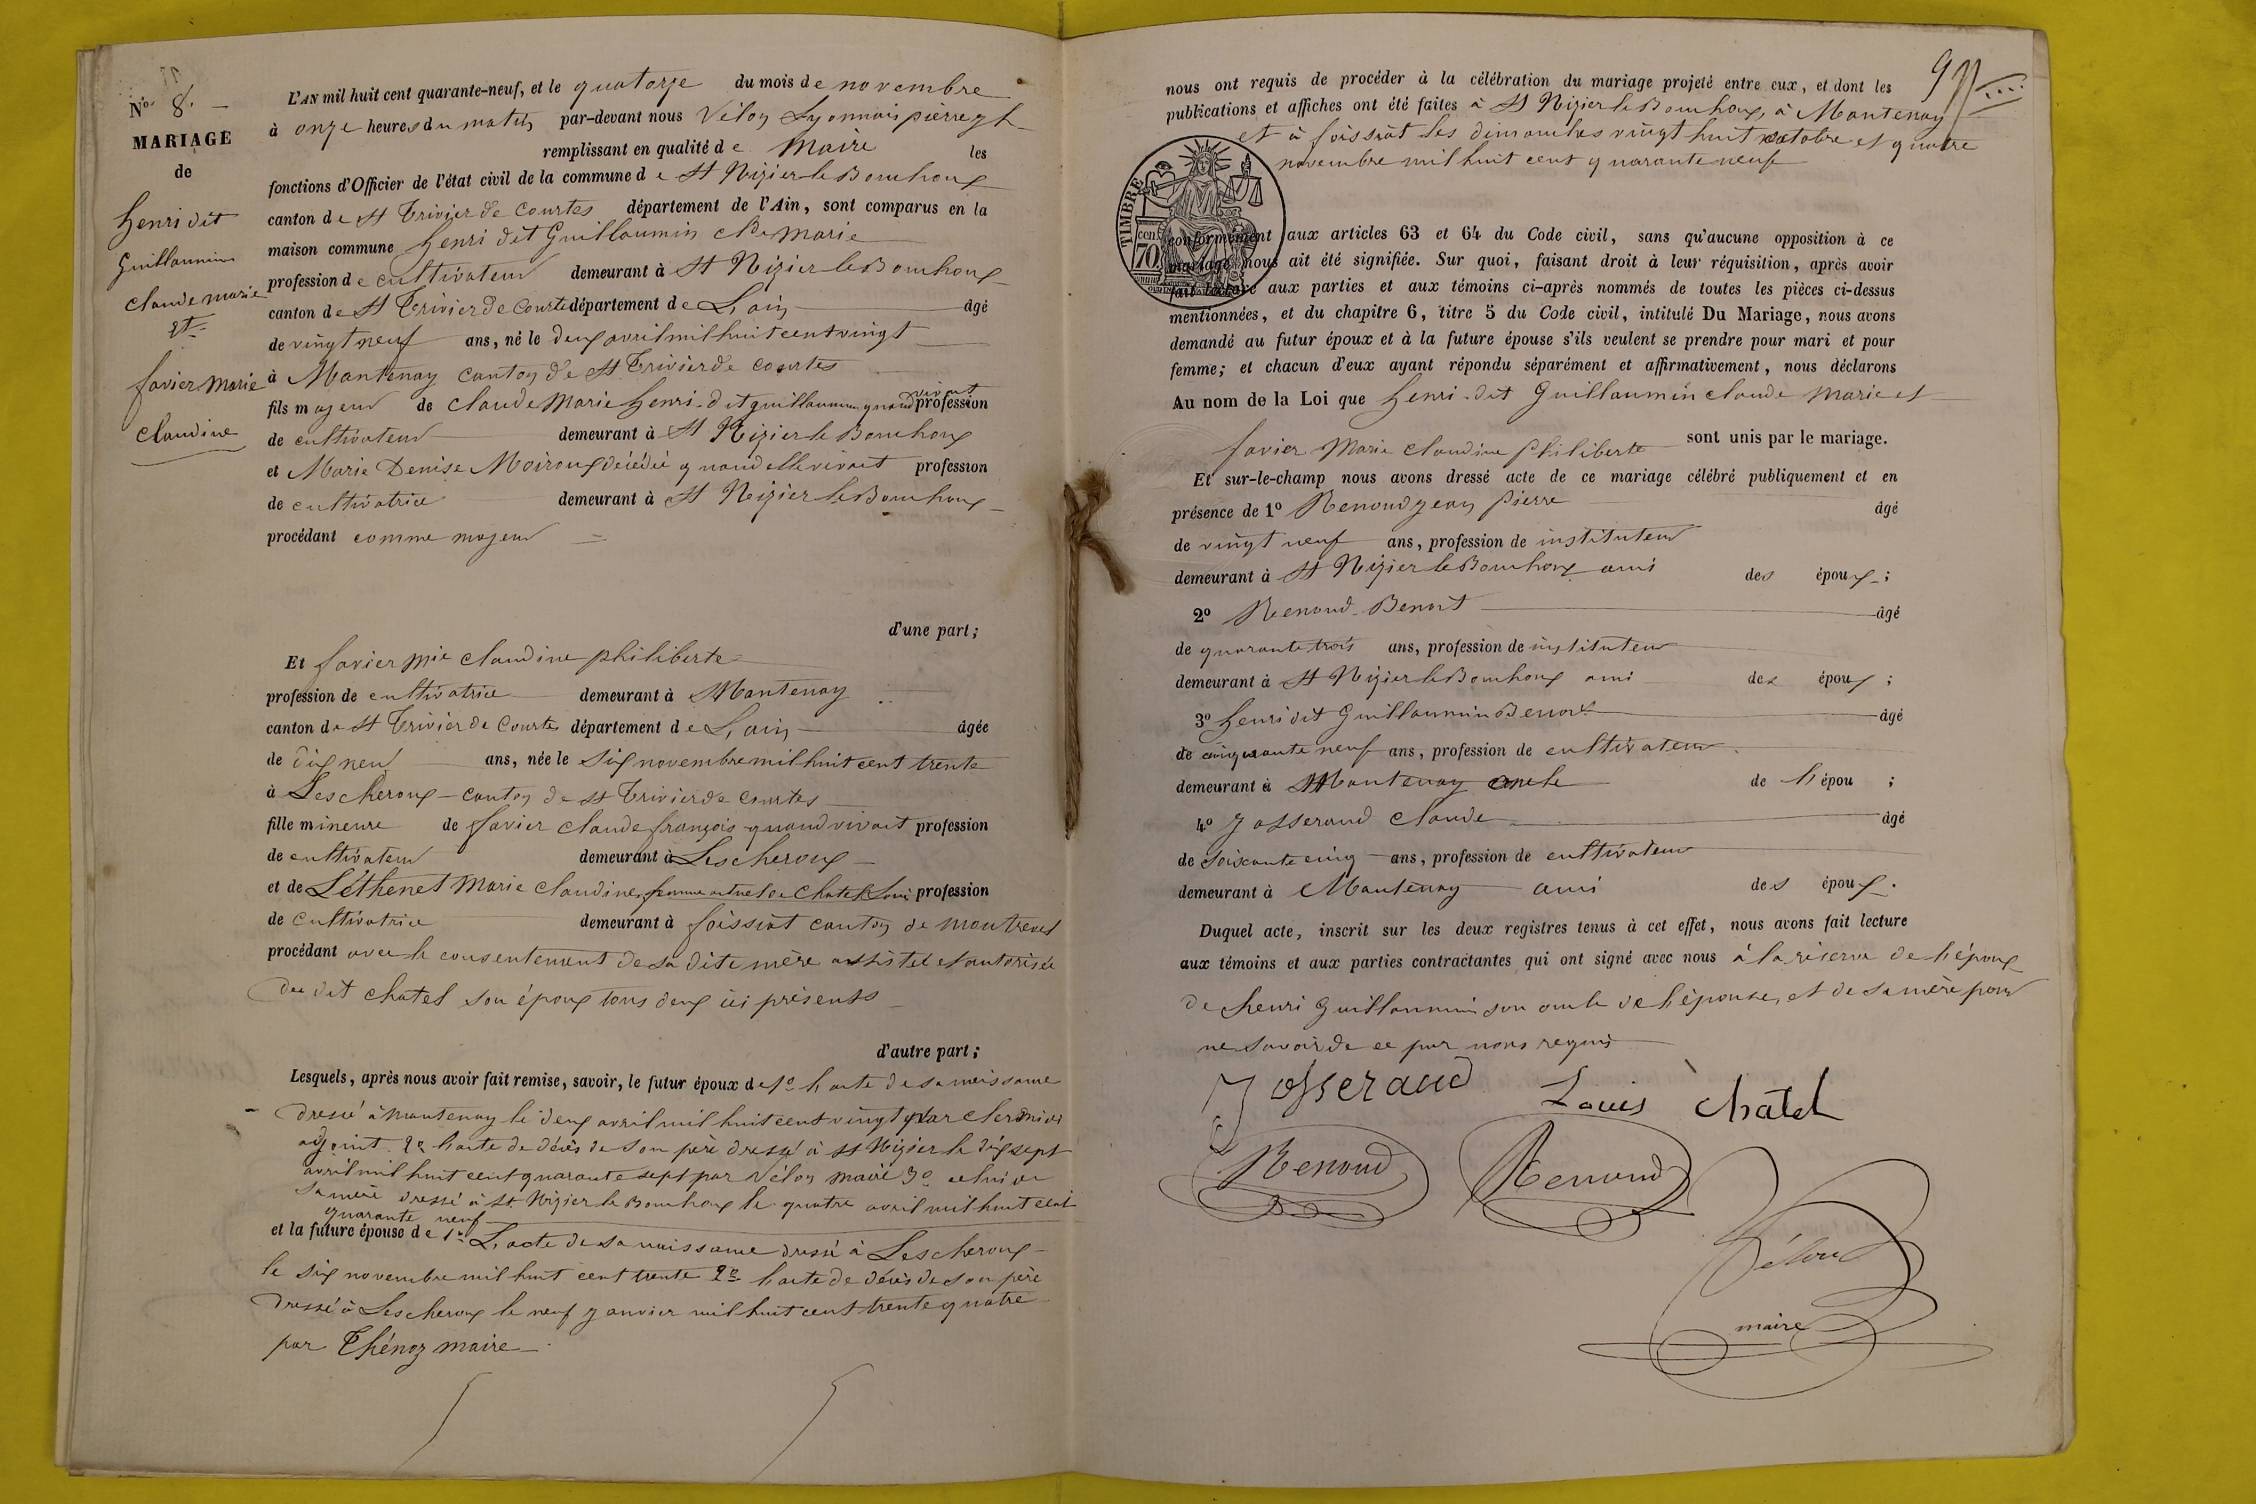 N.o 8.
MARIAGE
de
henri dit
Guillaumin
claude marie
et
favier marie
claudine
L'AN mil huit cent quarante-neuf, et le quatorze du mois de novembre
à onze heures du matin par-devant nous Vélon Lyonnais pierre
remplissant en qualité de Maire les
fonctions d'Officier de l'état civil de la commune de St Nizier le Bouchoux
canton de St Trivier de Courtes département de l'Ain, sont comparus en la
maison commune henri dit Guillaumin Cde Marie
profession de cultivateur demeurant à St Nizier le Bouchoux
canton de St Trivier de Courtes département de L'ain âgé
de vingt neuf ans, né le deux avril mil huit cent vingt
à Mantenay canton de St Trivier de courtes
fils majeur de claude Marie henri-dit guillaumin quand vivait profession
de cultivateur demeurant à St Nizier le Bouchoux
et Marie Denise Moiroux décédée quand elle vivait profession
de cultivatrice demeurant à St Nizier le Bouchoux
procédant comme majeur
d'une part;
Et favier mie claudine philiberte
profession de cultivatrice demeurant à Mantenay
canton de St Trivier de Courtes département de L'ain âgée
de dix neuf ans, née le six novembre mil huit cent trente
à Lescheroux - canton de St Trivier de Courtes
fille mineure de favier claude françois quand vivait profession
de cultivateur demeurant à Lescheroux
et de Léthenet Marie claudine, femme actuel de Chatel Louis profession
de cultivatrice demeurant à foissiat canton de montrevel
procédant avec le consentement de sa dite mère assistée et autorisée
du dit chatel son époux tous deux ici présents
d'autre part;
Lesquels, après nous avoir fait remise, savoir, le futur époux de 1o l'acte de sa naissance
dressé à Mantenay le deux avril mil huit cent vingt par
adjoint 2o l'acte de décès de son père dressé à St Nizier le dix sept
avril mil huit cent quarante sept par Vélon maire 3o celui de
sa mère dressé à St. Nizier le Bouchoux le quatre avril mil huit cent
quarante neuf
et la future épouse de 1o L'acte de sa naissance dressé à Lescheroux
le six novembre mil huit cent trente 2o l'acte de décès de son père
dressé à Lescheroux le neuf janvier mil huit cent trente quatre
par Thénoz maire
nous ont requis de procéder à la célébration du mariage projeté entre eux, et dont les
publications et affiches ont été faites à St Nizier le Bouchoux, à Mantenay
et à foissiat les dimanches vingt huit octobre et quatre
novembre mil huit cent quarante neuf
TIMBRE
70 cent
conformément aux articles 63 et 64 du Code civil, sans qu'aucune opposition à ce
mariage nous ait été signifiée. Sur quoi, faisant droit à leur réquisition, après avoir
fait lecture aux parties et aux témoins ci-après nommés de toutes les pièces ci-dessus
mentionnées, et du chapitre 6, titre 5 du Code civil, intitulé Du Mariage, nous avons
demandé au futur époux et à la future épouse s'ils veulent se prendre pour mari et pour
femme; et chacun d'eux ayant répondu séparément et affirmativement, nous déclarons
Au nom de la Loi que henri-dit Guillaumin claude Marie et
favier Marie claudine philiberte sont unis par le mariage.
Et sur-le-champ nous avons dressé acte de ce mariage célébré publiquement et en
présence de 1o Renoud jean pierre âgé
de vingt neuf ans, profession de instituteur
demeurant à St Nizier le Bouchoux ami des époux;
2o Renoud Benoit âgé
de quarante trois ans, profession de instituteur
demeurant à St Nizier le Bouchoux ami des époux;
3o henri dit Guillaumin Benoit âgé
de cinquante neuf ans, profession de cultivateur
demeurant à Mantenay oncle de l'épou;
4o Josserand Claude âgé
de soixante cinq ans, profession de cultivateur
demeurant à Mantenay ami des époux.
Duquel acte, inscrit sur les deux registres tenus à cet effet, nous avons fait lecture
aux témoins et aux parties contractantes qui ont signé avec nous à la réserve de l'époux
de henri guillaumin son oncle de l'épouse, et de sa mère pour
ne savoir de ce par nous requis
Josserand Louis chatel
Renoud Renoud
Vélon
maire